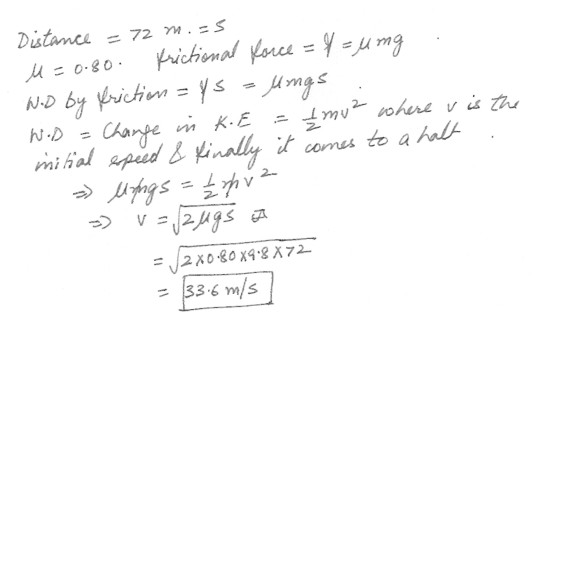 Distance = 72 m. = S
μ = 0.80. frictional force = f = μmg.
W.D by friction = fs = μmgs
W.D = Change in K.E = ½mv² where v is the
initial speed & finally it comes to a halt.
⇒ μmgs = ½mv²
⇒ v = √2μgs
= √2×0.80×9.8×72
= 33.6 m/s